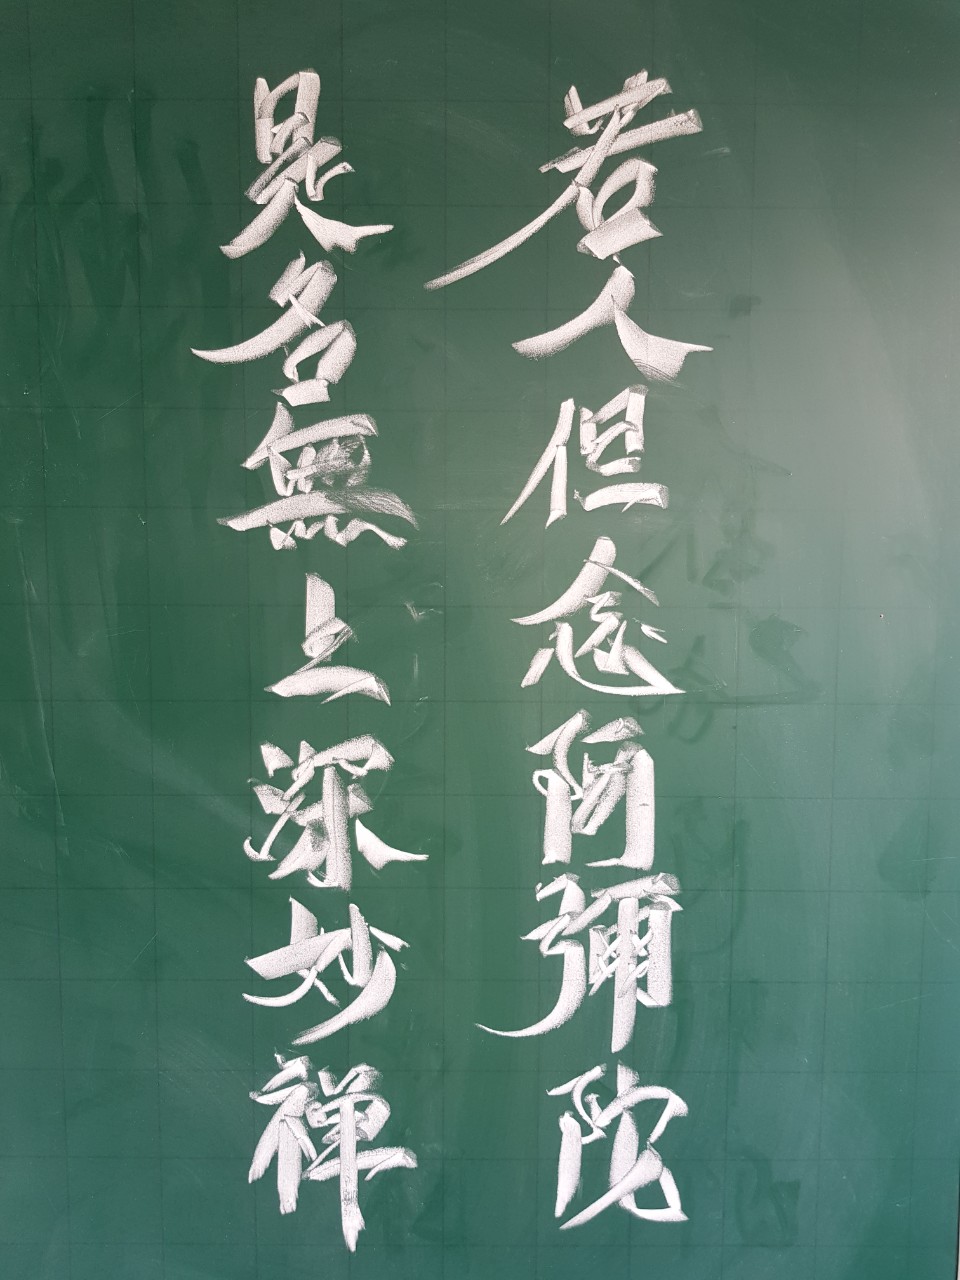 若人但念阿彌陀
是名無上深妙禅